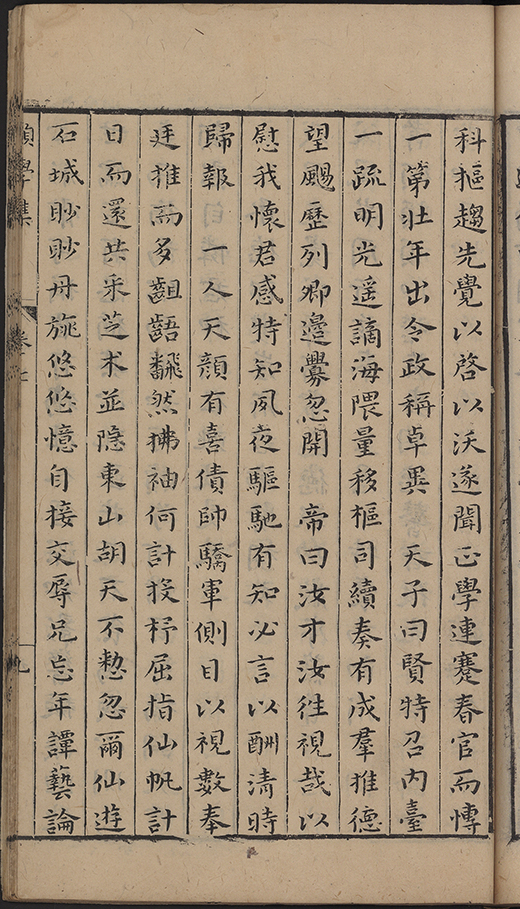 科摳趨先覺以啓以沃遂聞正學連蹇春官而慱
一第壯年出令政稱卓異　天子曰賢特召內臺
一疏明光遥謫海隈量移樞司續奏有成羣推德
望颺歷列卿邊釁忽開　帝曰汝才汝往視哉以
慰我懷君感特知夙夜驅馳有知必言以酬清時
歸報　一人天顔有喜債帥驕軍側目以視數奉
廷推而多齟齬飜然拂袖何計投杼屈指仙帆計
日而還共采芝术並隐東山胡天不憖忽爾仙遊
石城眇眇丹旐悠悠憶自接交辱兄忘年譚藝論
學集
卷七
九